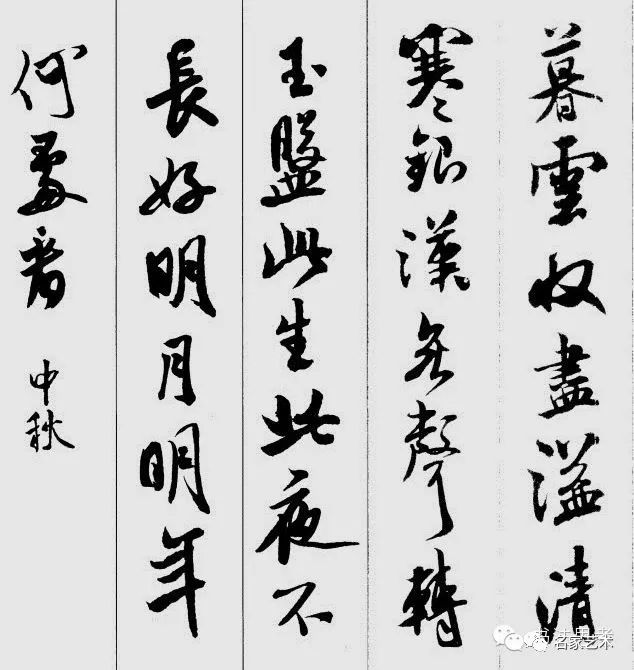 暮雲收盡溢清
寒銀漢無聲轉
玉盤此生此夜不
長好明月明年
何處看
中秋
名家艺术